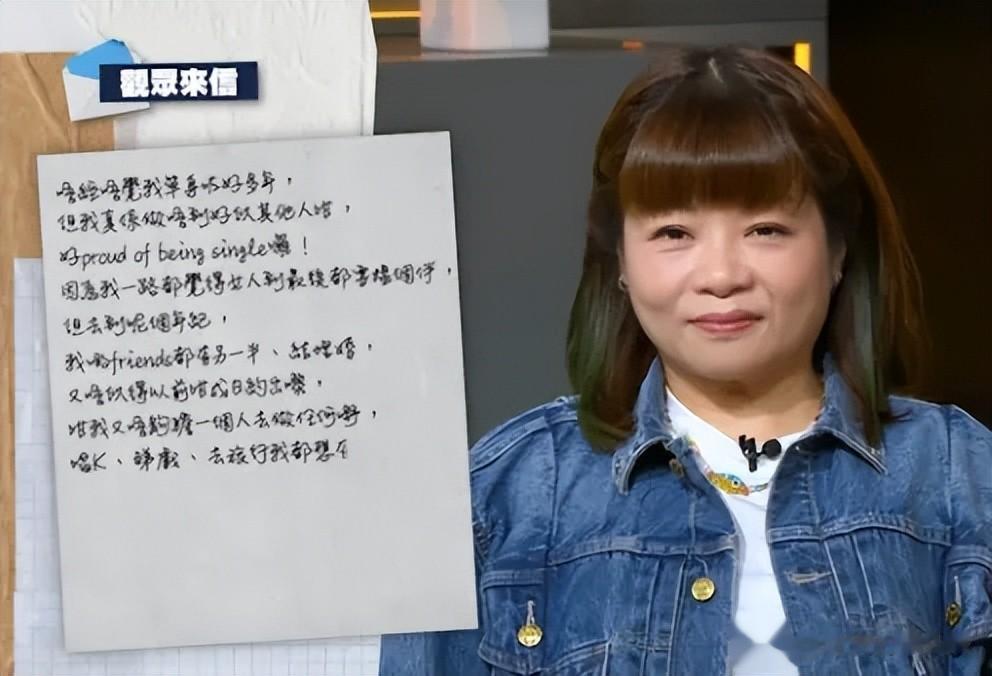 觀眾來信
唔經唔覺我單身咗好多年，
但我真係做唔到好似其他人咁，
好proud of being single囉！
因為我一路都覺得女人到最後都需搵個伴，
但去到呢個年紀，
我啲friends都有另一半、結埋婚，
又唔似得以前咁成日約出嚟，
咁我又唔夠膽一個人去做任何嘢，
唱K、睇戲、去旅行我都想有